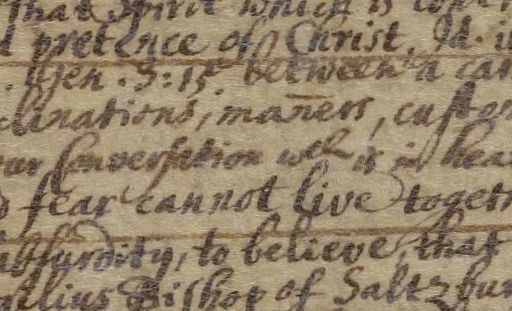 that Spirit which is
pretence of Christ. Id.
Gen. 3:15. between a
clinations, mañers, custom
our Conversation wch is in hea
fear cannot live togeth
absurdity, to believe, that
ilius Bishop of Saltzbur